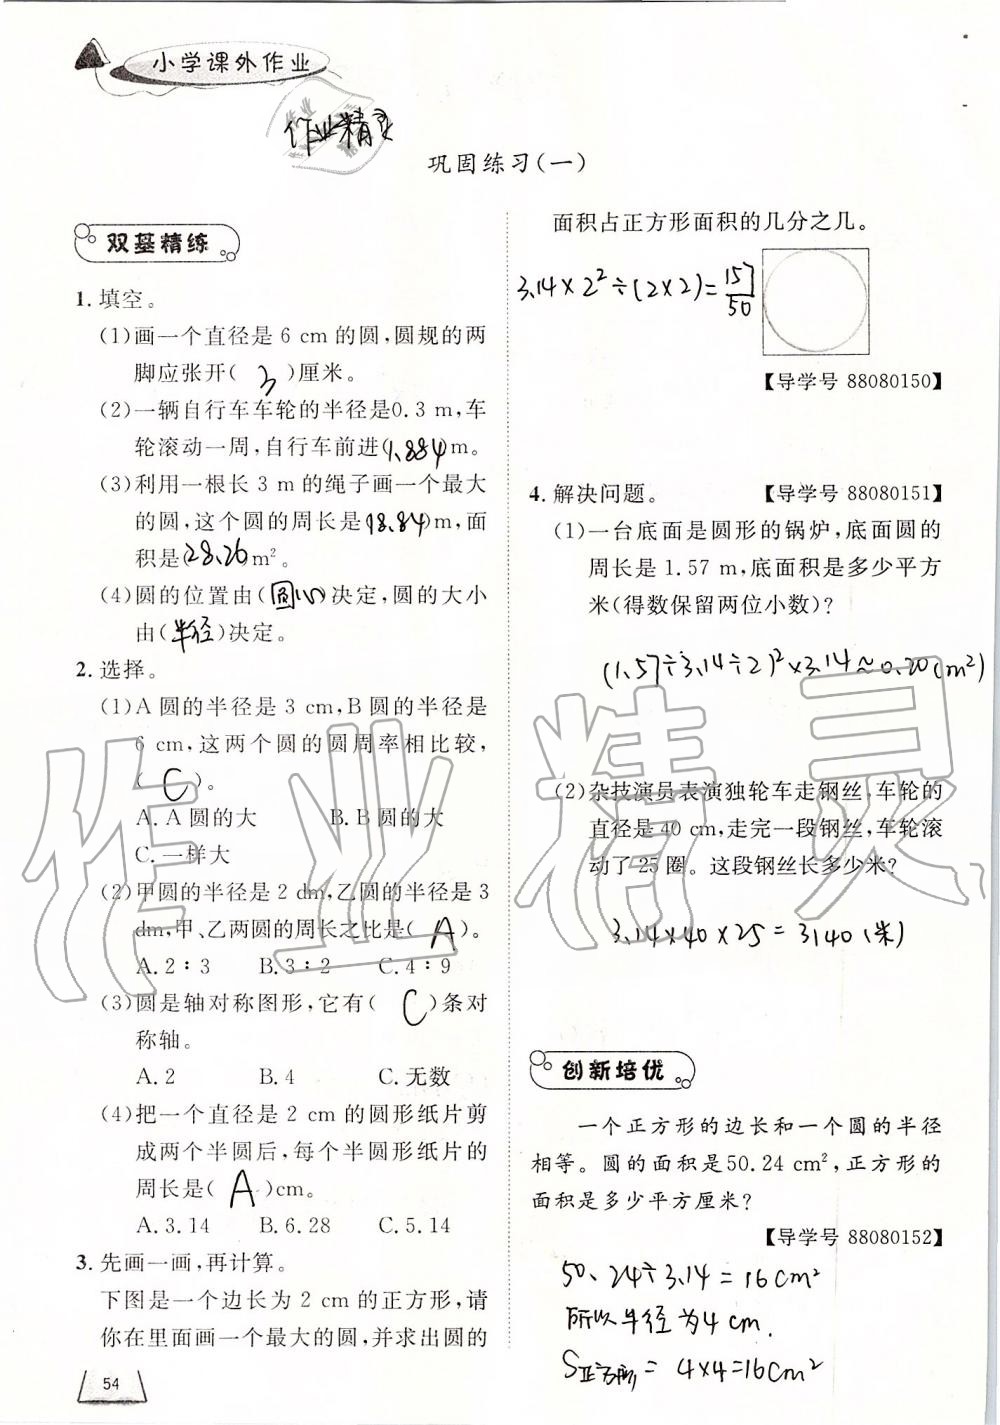 小学课外作业
作业精灵
巩固练习(一)
双基精练
1. 填空。
(1)画一个直径是 6 cm 的圆,圆规的两
脚应张开( 3 )厘米。
(2)一辆自行车车轮的半径是0.3 m,车
轮滚动一周,自行车前进(1.884)m。
(3)利用一根长 3 m 的绳子画一个最大
的圆,这个圆的周长是(18.84)m,面
积是(28.26)m²。
(4)圆的位置由(圆心)决定,圆的大小
由(半径)决定。
2. 选择。
(1)A 圆的半径是 3 cm,B 圆的半径是
6 cm,这两个圆的圆周率相比较,
( C )。
A. A 圆的大 B. B 圆的大
C. 一样大
(2)甲圆的半径是 2 dm,乙圆的半径是 3
dm,甲、乙两圆的周长之比是( A )。
A. 2∶3 B. 3∶2 C. 4∶9
(3)圆是轴对称图形,它有( C )条对
称轴。
A. 2 B. 4 C. 无数
(4)把一个直径是 2 cm 的圆形纸片剪
成两个半圆后,每个半圆形纸片的
周长是( A )cm。
A. 3.14 B. 6.28 C. 5.14
3. 先画一画,再计算。
下图是一个边长为 2 cm 的正方形,请
你在里面画一个最大的圆,并求出圆的
54
面积占正方形面积的几分之几。
3.14×2²÷(2×2)=157/50
【导学号 88080150】
4. 解决问题。 【导学号 88080151】
(1)一台底面是圆形的锅炉,底面圆的
周长是 1.57 m,底面积是多少平方
米(得数保留两位小数)?
(1.57÷3.14÷2)²×3.14≈0.20(m²)
(2)杂技演员表演独轮车走钢丝,车轮的
直径是 40 cm,走完一段钢丝,车轮滚
动了 25 圈。这段钢丝长多少米?
3.14×40×25=3140(米)
创新培优
一个正方形的边长和一个圆的半径
相等。圆的面积是50.24 cm²,正方形的
面积是多少平方厘米?
【导学号 88080152】
50.24÷3.14=16cm²
所以半径为4cm.
S正方形=4×4=16cm²
作业精灵